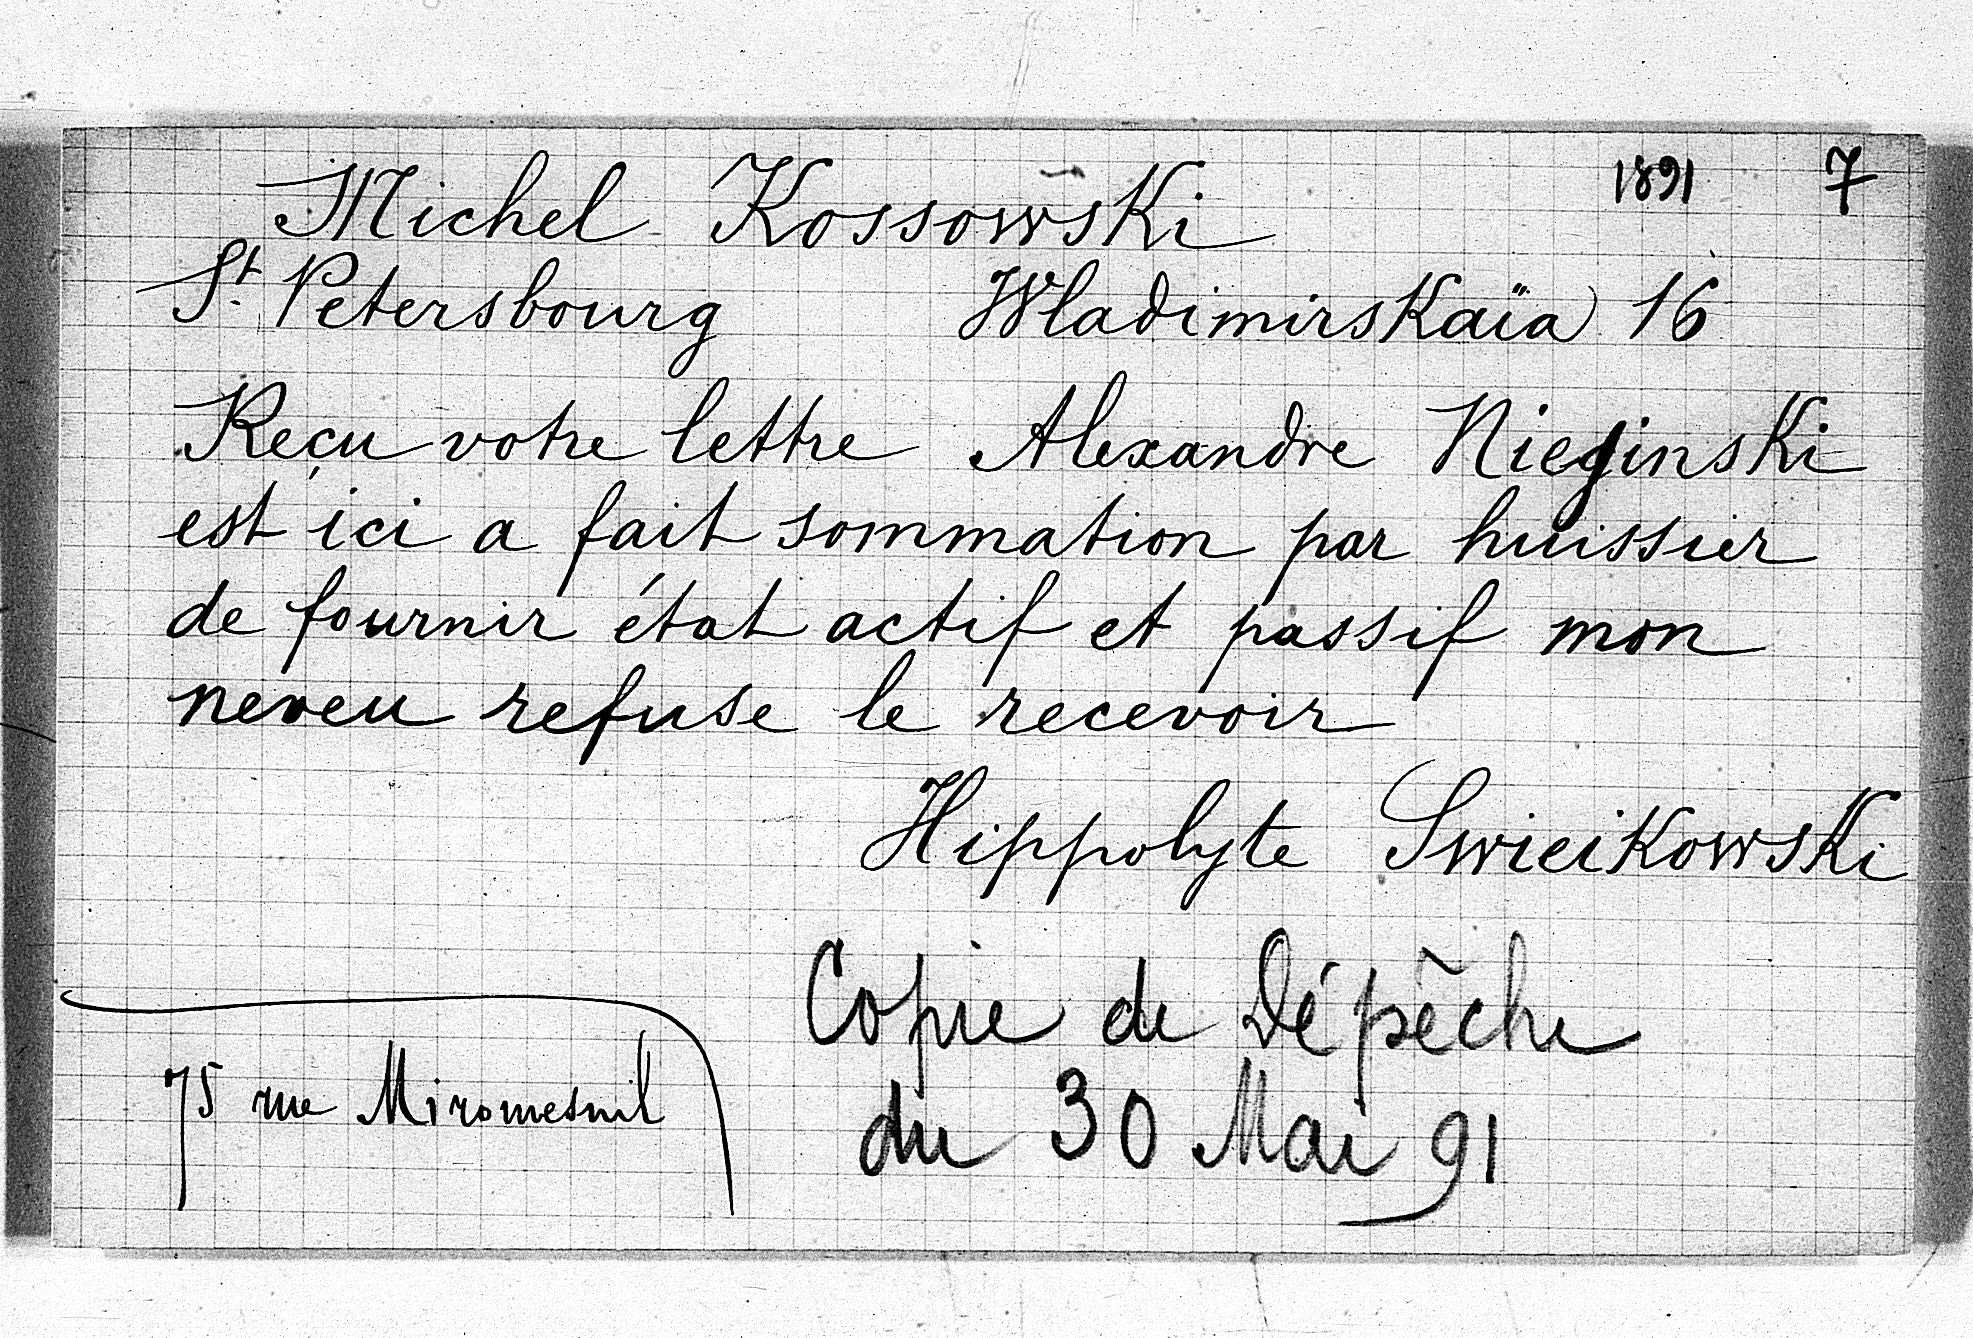 1891 7
Michel Kossowski
St Petersbourg Wladimirskaïa 16
Reçu votre lettre Alexandre Nieginski
est ici a fait sommation par huissier
de fournir état actif et passif mon
neveu refuse le recevoir
Hippolyte Swieikowski
Copie de Dépêche
du 30 Mai 91
75 rue Miromesnil